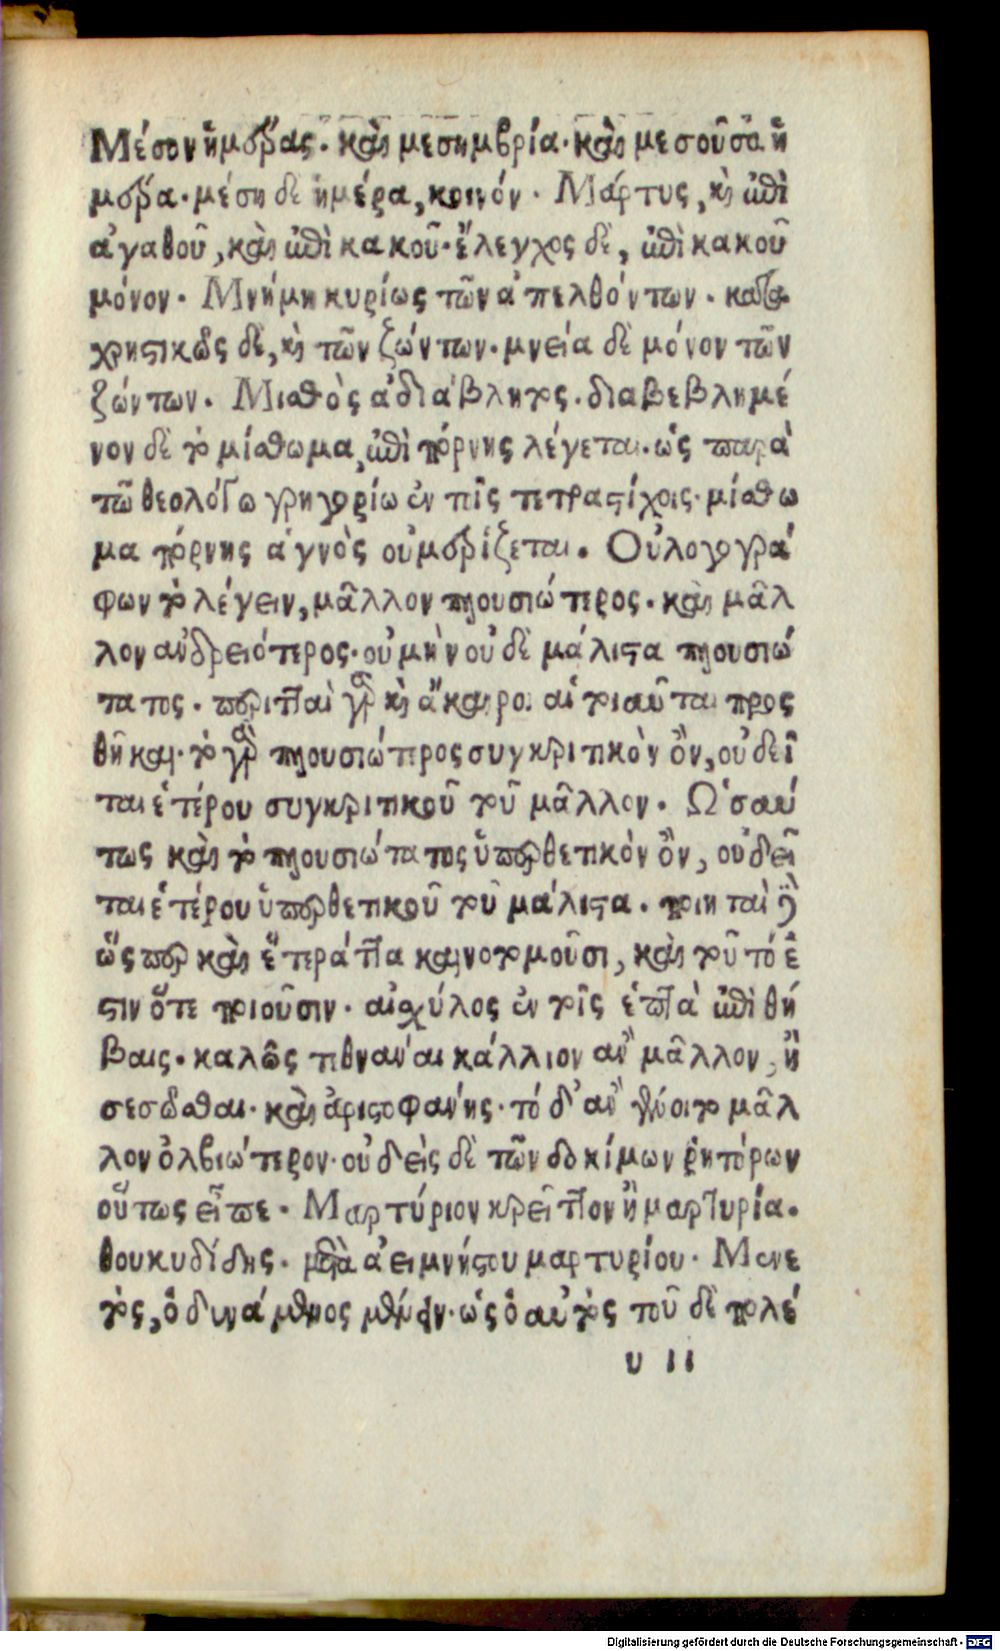 Μέσον ἡμέρας· καὶ μεσημβρία· καὶ μεσοῦσα ἡ
μέρα· μέση δὲ ἡμέρα, κοινόν· Μάρτυς, καὶ ἐπὶ
ἀγαθοῦ, καὶ ἐπὶ κακοῦ· ἔλεγχος δὲ, ἐπὶ κακοῦ
μόνον· Μνήμη κυρίως τῶν ἀπελθόντων· κατα
χρηστικῶς δὲ, καὶ τῶν ζώντων· μνεία δὲ μόνον τῶν
ζώντων· Μισθὸς ἀδιάβλητος· διαβεβλημέ
νον δὲ τὸ μίσθωμα, ἐπὶ πόρνης λέγεται· ὡς παρὰ
τῶ θεολόγω γρηγορίω ἐν τοῖς τετραστίχοις· μίσθω
μα πόρνης ἁγνὸς οὐ μερίζεται· Οὐ λογογρά
φων τὸ λέγειν, μᾶλλον πλουσιώτερος· καὶ μᾶλ
λον ἀνδρειότερος· οὐ μὴν οὐδὲ μάλιστα πλουσιώ
τατος· περιτταὶ γὰρ καὶ ἄκαιροι αἱ τοιαῦται προς
θῆκαι· τὸ γὰρ πλουσιώτερος συγκριτικὸν ὂν, οὐ δεῖ
ται ἑτέρου συγκριτικοῦ τοῦ μᾶλλον· Ὡσαύ
τως καὶ τὸ πλουσιώτατος ὑπερθετικὸν ὂν, οὐ δεῖ
ται ἑτέρου ὑπερθετικοῦ τοῦ μάλιστα· ποιηταὶ δὲ
ὥσπερ καὶ ἕτερά τινα καινοτομοῦσι, καὶ τοῦτό ἐ
στιν ὅτε ποιοῦσιν· αἰσχύλος ἐν τοῖς ἑπτὰ ἐπὶ θή
βαις· καλῶς τεθνάναι κάλλιον ἂν μᾶλλον, ἢ
σεσῶσθαι· καὶ ἀριστοφάνης· τό δ' ἂν γένοιτο μᾶλ
λον ὀλβιώτερον· οὐδεὶς δὲ τῶν δοκίμων ῥητόρων
οὕτως εἶπε· Μαρτύριον κρεῖττον ἢ μαρτυρία·
θουκυδίδης· μετὰ ἀειμνήστου μαρτυρίου· Μενε
τὸς, ὁ δυνάμενος μένειν· ὡς ὁ αὐτὸς τοῦ δὲ πολέ
υ ιι
Digitalisierung gefördert durch die Deutsche Forschungsgemeinschaft - DFG